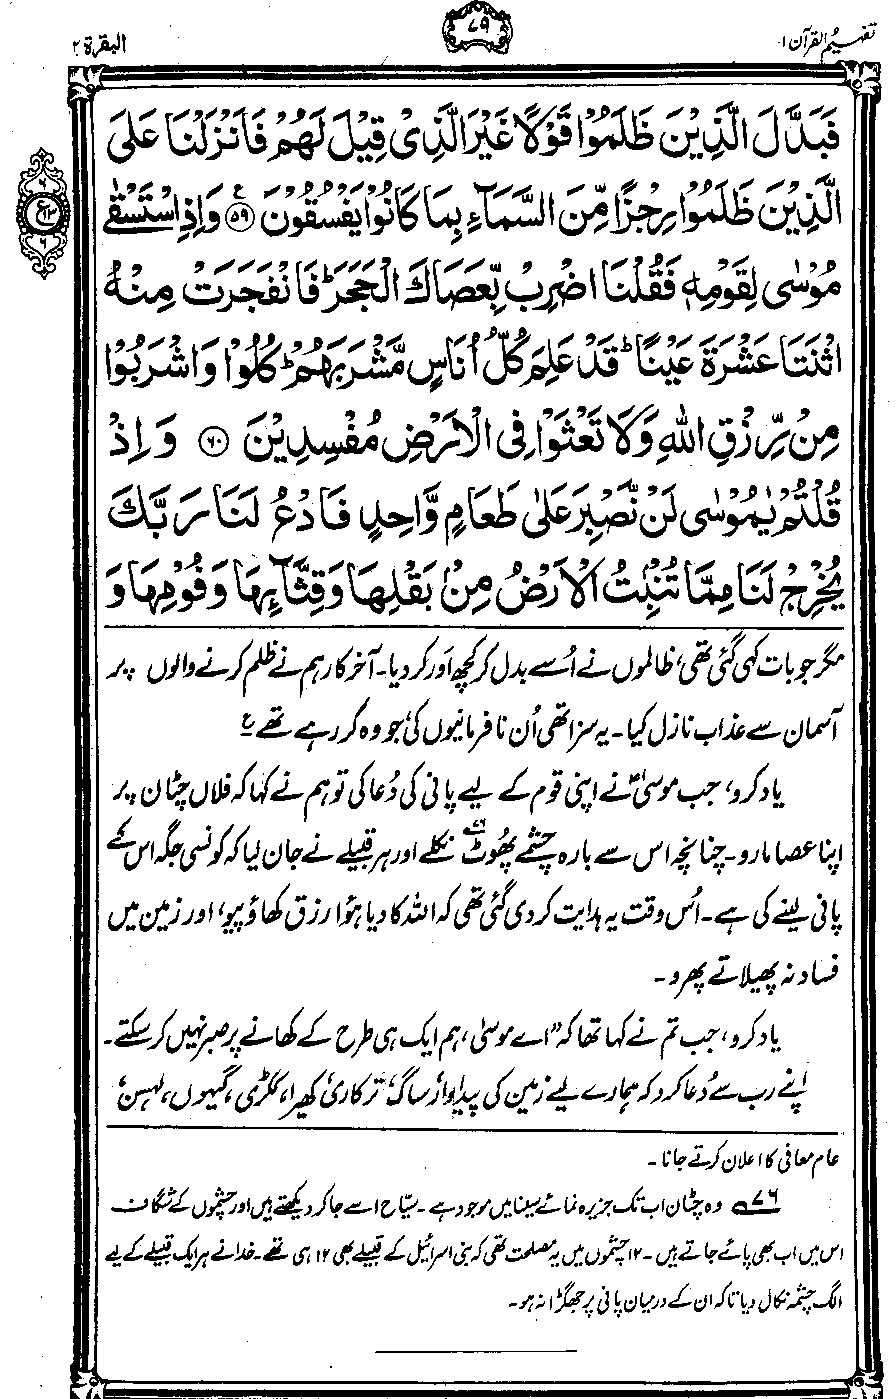 تفہیم القرآن ۱
۷۹
البقرۃ ۲
فَبَدَّلَ الَّذِيْنَ ظَلَمُوْا قَوْلًا غَيْرَ الَّذِيْ قِيْلَ لَهُمْ فَاَنْزَلْنَا عَلَى
الَّذِيْنَ ظَلَمُوْا رِجْزًا مِّنَ السَّمَآءِ بِمَا كَانُوْا يَفْسُقُوْنَ ۵۹ ع وَاِذِ اسْتَسْقٰى
مُوْسٰى لِقَوْمِهٖ فَقُلْنَا اضْرِبْ بِّعَصَاكَ الْحَجَرَ ؕ فَانْفَجَرَتْ مِنْهُ
اثْنَتَا عَشْرَةَ عَيْنًا ؕ قَدْ عَلِمَ كُلُّ اُنَاسٍ مَّشْرَبَهُمْ ؕ كُلُوْا وَاشْرَبُوْا
مِنْ رِّزْقِ اللّٰهِ وَلَا تَعْثَوْا فِى الْاَرْضِ مُفْسِدِيْنَ ۶۰ وَاِذْ
قُلْتُمْ يٰمُوْسٰى لَنْ نَّصْبِرَ عَلٰى طَعَامٍ وَّاحِدٍ فَادْعُ لَنَا رَبَّكَ
يُخْرِجْ لَنَا مِمَّا تُنْۢبِتُ الْاَرْضُ مِنْۢ بَقْلِهَا وَقِثَّآئِهَا وَفُوْمِهَا وَ
مگر جو بات کہی گئی تھی، ظالموں نے اُسے بدل کر کچھ اَور کر دیا۔ آخر کار ہم نے ظلم کرنے والوں پر
آسمان سے عذاب نازل کیا۔ یہ سزا تھی اُن نافرمانیوں کی جو وہ کر رہے تھے ع
یاد کرو، جب موسیٰؑ نے اپنی قوم کے لیے پانی کی دُعا کی تو ہم نے کہا کہ فلاں چٹان پر
اپنا عصا مارو۔ چنانچہ اس سے بارہ چشمے پھُوٹ ۷۶ نکلے اور ہر قبیلے نے جان لیا کہ کونسی جگہ اس کے
پانی لینے کی ہے۔ اُس وقت یہ ہدایت کر دی گئی تھی کہ اللہ کا دیا ہؤا رزق کھاؤ پیو، اور زمین میں
فساد نہ پھیلاتے پھرو۔
یاد کرو، جب تم نے کہا تھا کہ ”اے موسیٰ، ہم ایک ہی طرح کے کھانے پر صبر نہیں کر سکتے۔
اپنے رب سے دُعا کرو کہ ہمارے لیے زمین کی پیداوار ساگ، ترکاری، کھیرا، ککڑی، گیہوں، لہسن،
عام معافی کا اعلان کرتے جانا۔
۷۶ وہ چٹان اب تک جزیرہ نمائے سینا میں موجود ہے۔ سیّاح اسے جا کر دیکھتے ہیں اور چشموں کے شگاف
اس میں اب بھی پائے جاتے ہیں۔ ۱۲ چشموں میں یہ مصلحت تھی کہ بنی اسرائیل کے قبیلے بھی ۱۲ ہی تھے۔ خدا نے ہر ایک قبیلے کے لیے
الگ چشمہ نکال دیا تاکہ ان کے درمیان پانی پر جھگڑا نہ ہو۔